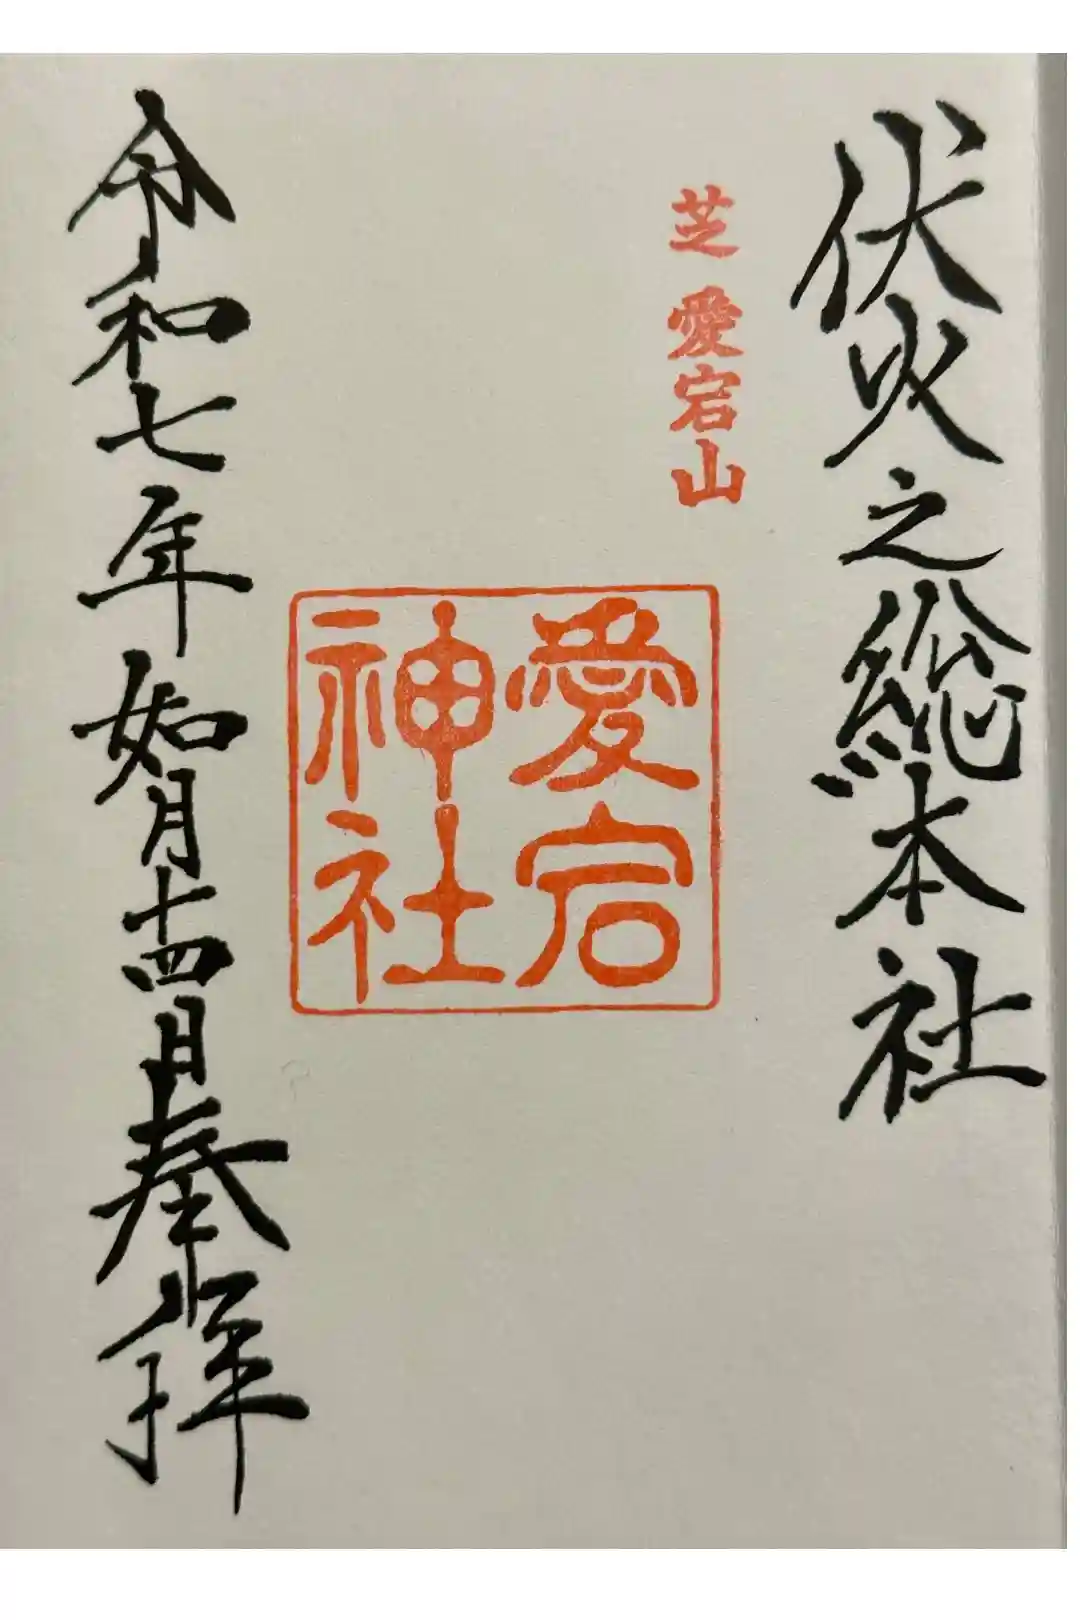 伏火之総本社
芝 愛宕山
愛宕
神社
令和七年如月十四日奉拝